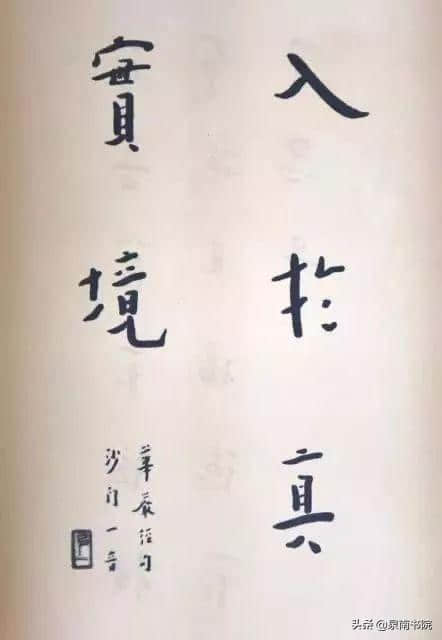 入於真
實境
華嚴經句
沙門一音
头条@泉南书院